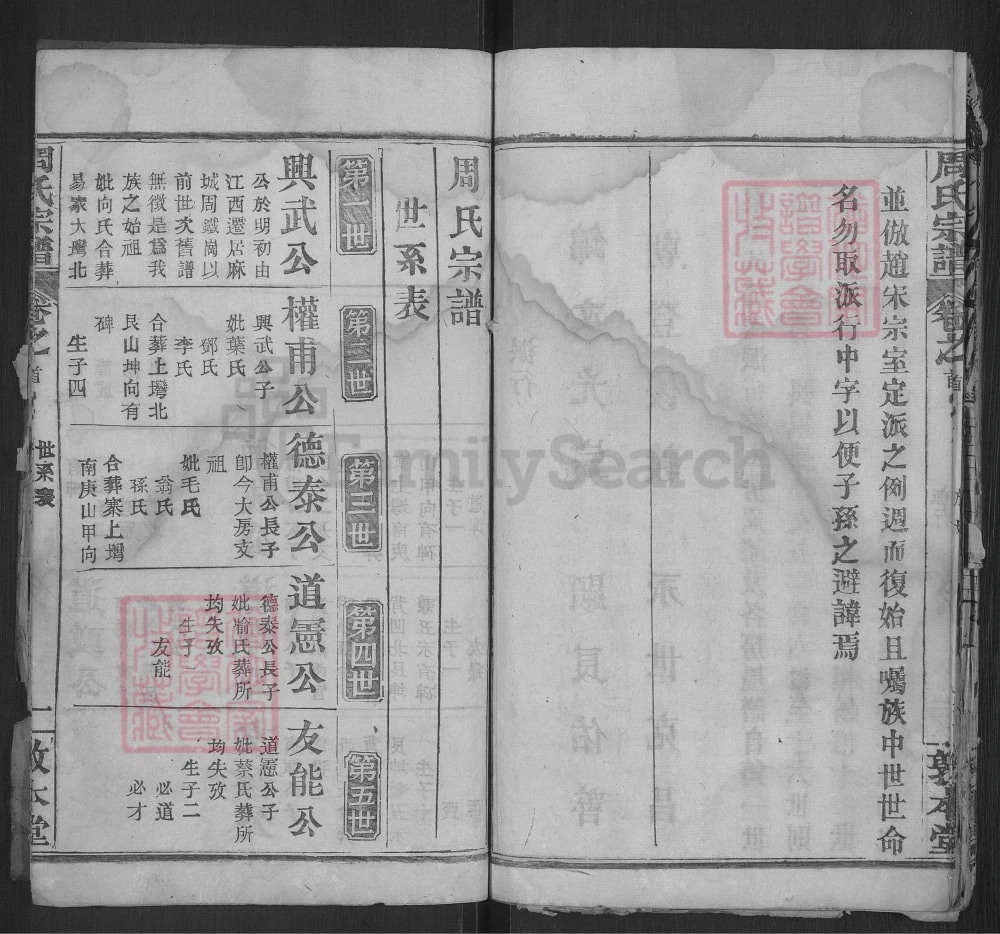 周氏宗譜
卷之首
敦本堂
並倣趙宋宗室定派之例週而復始且囑族中世世命
名勿取派行中字以便子孫之避諱焉
周氏宗譜
世系表
第一世
興武公
公於明初由
江西遷居麻
城周鐵崗以
前世次舊譜
無徵是爲我
族之始祖
妣向氏合葬
易家大塆北
第二世
權甫公
興武公子
妣葉氏
鄧氏
李氏
合葬上塆北
艮山坤向有
碑
生子四
第三世
德泰公
權甫公長子
卽今大房文
祖
妣毛氏
翁氏
孫氏
合葬寨上塆
南庚山甲向
第四世
道憲公
德泰公長子
妣喻氏葬所
均失攷
生子一
友能
第五世
友能公
道憲公子
妣蔡氏葬所
均失攷
生子二
必道
必才
周氏宗譜
卷之首
世系表
一
敦本堂
FamilySearch